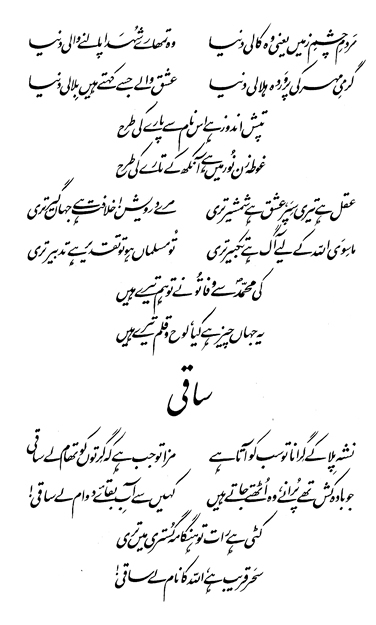 مردمِ چشمِ زمیں یعنی وہ کالی دنیا وہ تمھارے شُہَدا پالنے والی دنیا
گرمیِ مہر کی پروردہ ہلالی دنیا عشق والے جسے کہتے ہیں بِلالی دنیا
تپش اندوز ہے اس نام سے پارے کی طرح
غوطہ زن نُور میں ہے آنکھ کے تارے کی طرح
عقل ہے تیری سِپَر، عشق ہے شمشیر تری مرے درویش! خلافت ہے جہاں گیر تری
ماسِوَی اللہ کے لیے آگ ہے تکبیر تری تُو مسلماں ہو تو تقدیر ہے تدبیر تری
کی محمدؐ سے وفا تُو نے تو ہم تیرے ہیں
یہ جہاں چیز ہے کیا، لوح و قلم تیرے ہیں
ساقی
نشہ پِلا کے گِرانا تو سب کو آتا ہے مزا تو جب ہے کہ گرتوں کو تھام لے ساقی
جو بادہ کش تھے پُرانے، وہ اُٹھتے جاتے ہیں کہیں سے آبِ بقائے دوام لے ساقی!
کٹی ہے رات تو ہنگامہ گُستری میں تری
سحر قریب ہے، اللہ کا نام لے ساقی!